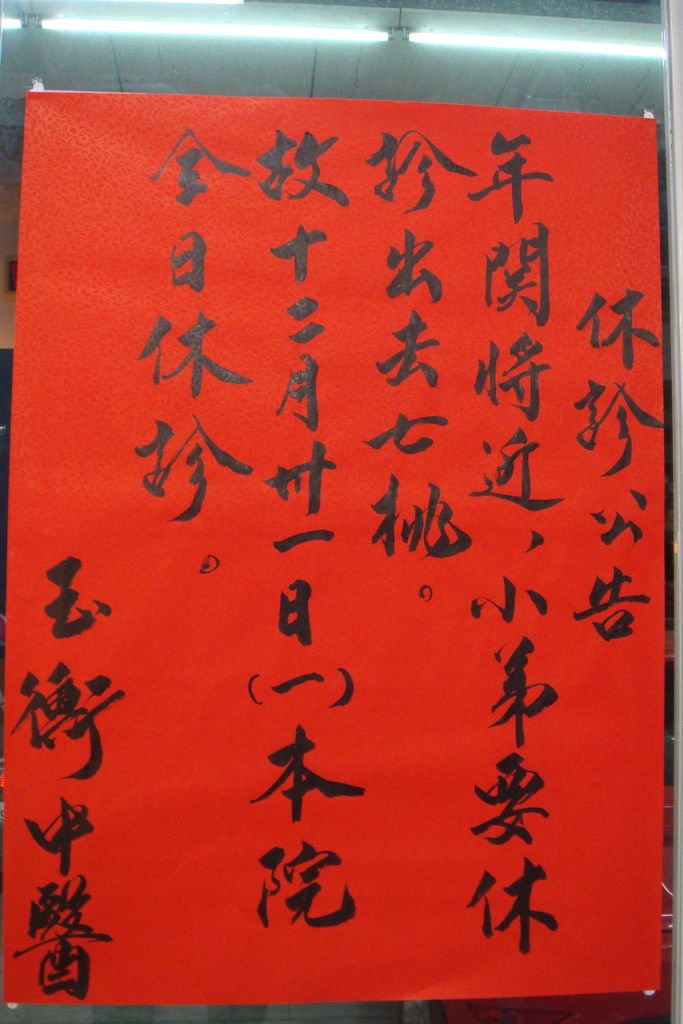 休診公告
年関将近、小弟要休
診出去七桃。
故十二月卅一日(一)本院
全日休診。
玉衡中醫